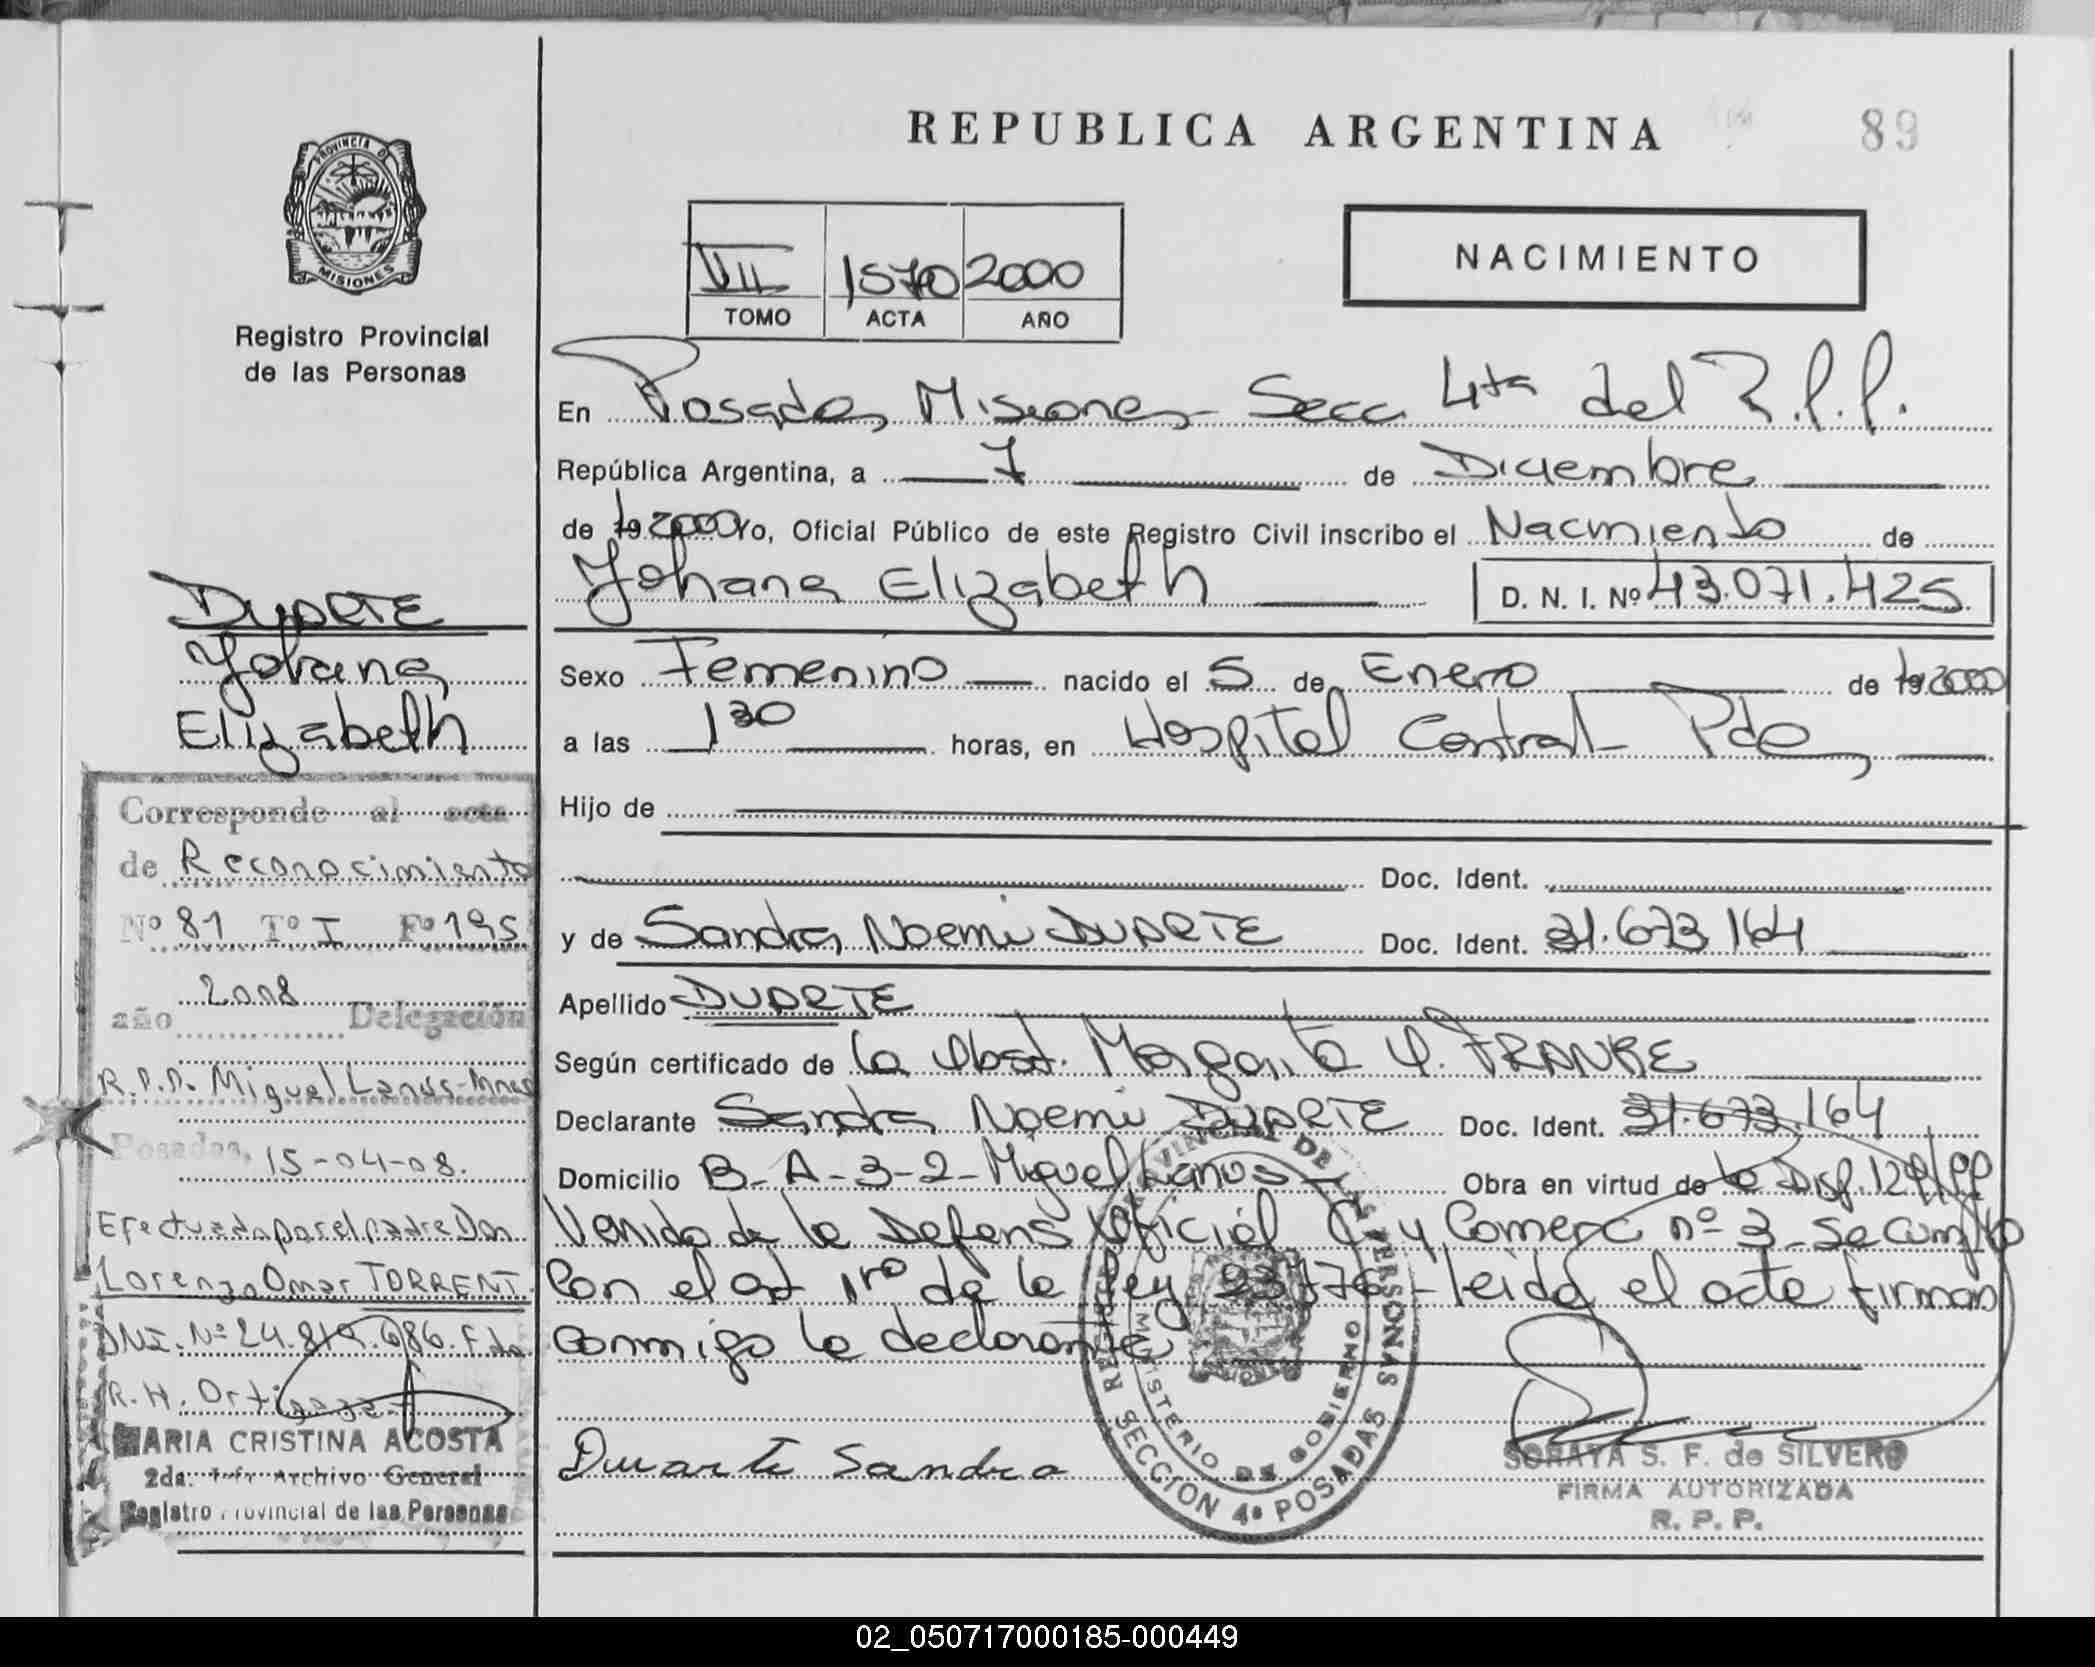 REPUBLICA ARGENTINA
89
PROVINCIA DE
MISIONES
Registro Provincial
de las Personas
VII 1570 2000
TOMO ACTA AÑO
NACIMIENTO
En Posadas, Misiones - Secc. 4ta del R.P.P.
República Argentina, a 7 de Diciembre
de 19 2000 Yo, Oficial Público de este Registro Civil inscribo el Nacimiento de
Yohana Elizabeth D. N. I. Nº 43.071.425
Sexo Femenino nacido el 5 de Enero de 19 2000
a las 1 30 horas, en Hospital Central Pdas
Hijo de
Doc. Ident.
y de Sandra Noemi DUARTE Doc. Ident. 31.673.164
Apellido DUARTE
Según certificado de la Obst. Margarita FRANKE
Declarante Sandra Noemi DUARTE Doc. Ident. 31.673.164
Domicilio B- A-3-2- Miguel Lanus Obra en virtud de la Disp. 129/99
Venida de la Defens Oficial C. y Comerc nº 3 - Se cumplio
Con el art 1ro de la Ley 23776 - leida el acta firman
conmigo la declarante
Duarte Sandra
PROVINCIAL DE LAS PERSONAS
MINISTERIO DE GOBIERNO
SECCION 4ª POSADAS
SORAYA S. F. de SILVERO
FIRMA AUTORIZADA
R. P. P.
DUARTE
Yohana
Elizabeth
Corresponde al acta
de Reconocimiento
Nº 81 Tº I Fº 195
año 2008 Delegación
R.P.P. Miguel Lanus - Mnes
Posadas, 15-04-08.
Efectuada por el padre Don
Lorenzo Omar TORRENT.
DNI. Nº 24.819.686. Fdo
R.H. Ortigoza
MARIA CRISTINA ACOSTA
2da. Archivo General
Registro Provincial de las Personas
02_050717000185-000449